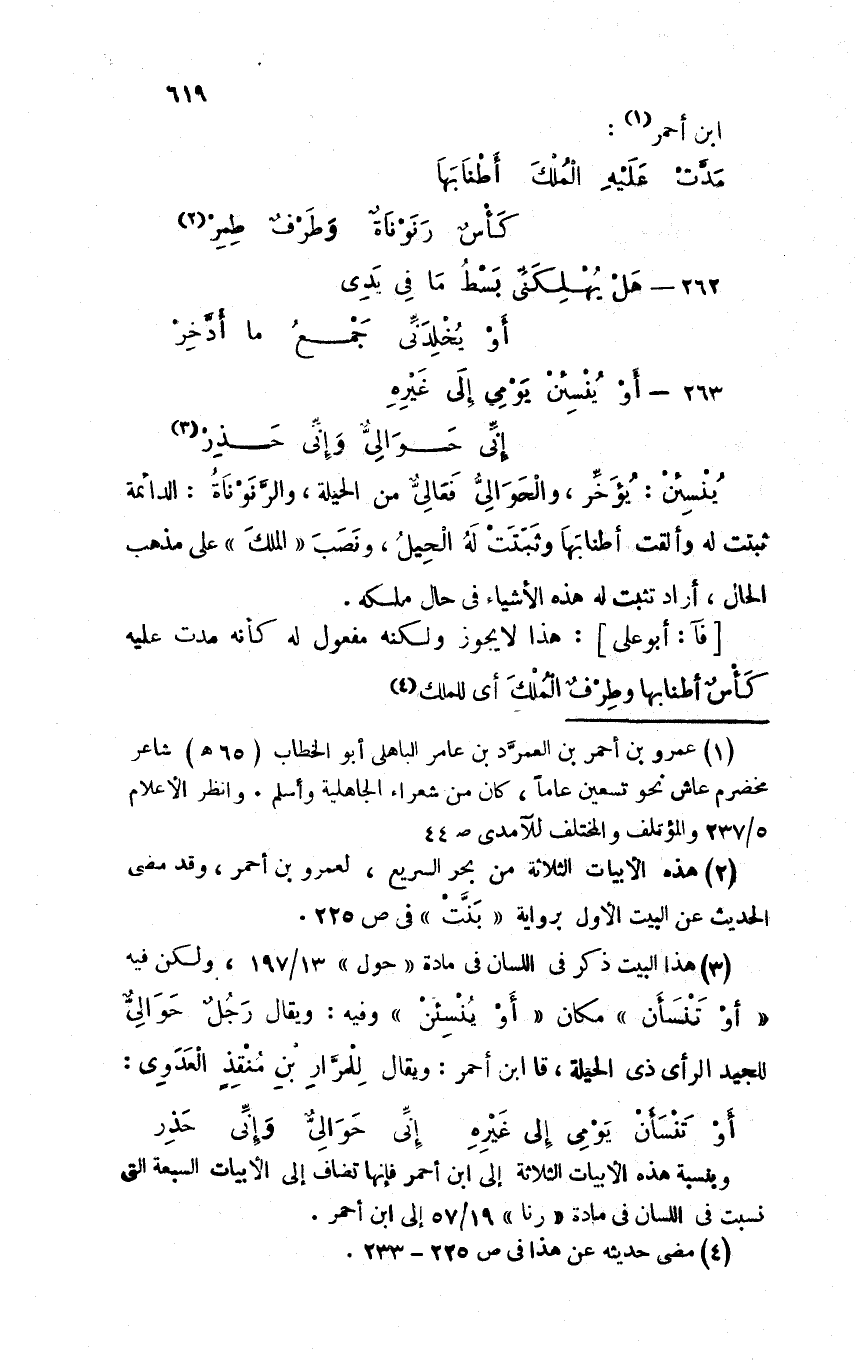 ٦١٩
ابن أحمر(١) :
مَدَّتْ عَلَيْهِ الْمُلْكَ أَطْنَابَهَا
كَأْسٌ رَنَوْنَاةٌ وَطَرْفٌ طِمِرْ(٢)
٢٦٢ — هَلْ يُهْلِكَنِّى بَسْطُ مَا فِى يَدِى
أَوْ يُخْلِدَنِّى جَمْعُ ما أَدَّخِرْ
٢٦٣ — أَوْ يُنْسِئَنْ يَوْمِي إِلَى غَيْرِهِ
إِنِّى حَوَالِيٌّ وَإِنِّى حَذِرْ(٣)
يُنْسِئَنْ : يُؤَخِّر ، والْحَوَالِيُّ فَعَالِيٌّ من الحيلة ، والرَّنَوْنَاةُ : الدائمة
ثبتت له وألقت أطنابَهَا وثَبَّتَتْ لَهُ الْحِيلُ ، ونَصَبَ « الملكَ » على مذهب
الحال ، أراد تثبت له هذه الأشياء فى حال ملكه .
[ فآ : أبو على ] : هذا لايجوز ولكنه مفعول له كأنه مدت عليه
كَأْسٌ أطنابها وطِرْفٌ الْمُلْكَ أى للملك(٤)
(١) عمرو بن أحمر بن العمرَّد بن عامر الباهلى أبو الخطاب ( ٦٥ ه ) شاعر
مخضرم عاش نحو تسعين عاماً ، كان من شعراء الجاهلية وأسلم . وانظر الأعلام
٢٣٧/٥ والمؤتلف والمختلف للآمدى صـ ٤٤
(٢) هذه الأبيات الثلاثة من بحر السريع ، لعمرو بن أحمر ، وقد مضى
الحديث عن البيت الأول برواية « بَنَّتْ » فى ص ٢٢٥ .
(٣) هذا البيت ذكر فى اللسان فى مادة « حول » ١٩٧/١٣ ، ولكن فيه
« أوْ تَنْسَأَن » مكان « أَوْ يُنْسِئَنْ » وفيه : ويقال رَجُلٌ حَوَالِيٌّ
للجيد الرأى ذى الحيلة ، قا ابن أحمر : ويقال لِلْمَرَّارِ بْنِ مُنْقِذٍ الْعَدَوِى :
أَوْ تَنْسَأَنْ يَوْمِى إِلى غَيْرِهِ إِنِّى حَوَالِيٌّ وَإِنِّى حَذِر
وبنسبة هذه الأبيات الثلاثة إلى ابن أحمر فإنها تضاف إلى الأبيات السبعة التى
نسبت فى اللسان فى مادة « رنا » ٥٧/١٩ إلى ابن أحمر .
(٤) مضى حديثه عن هذا فى ص ٢٢٥ — ٢٣٣ .